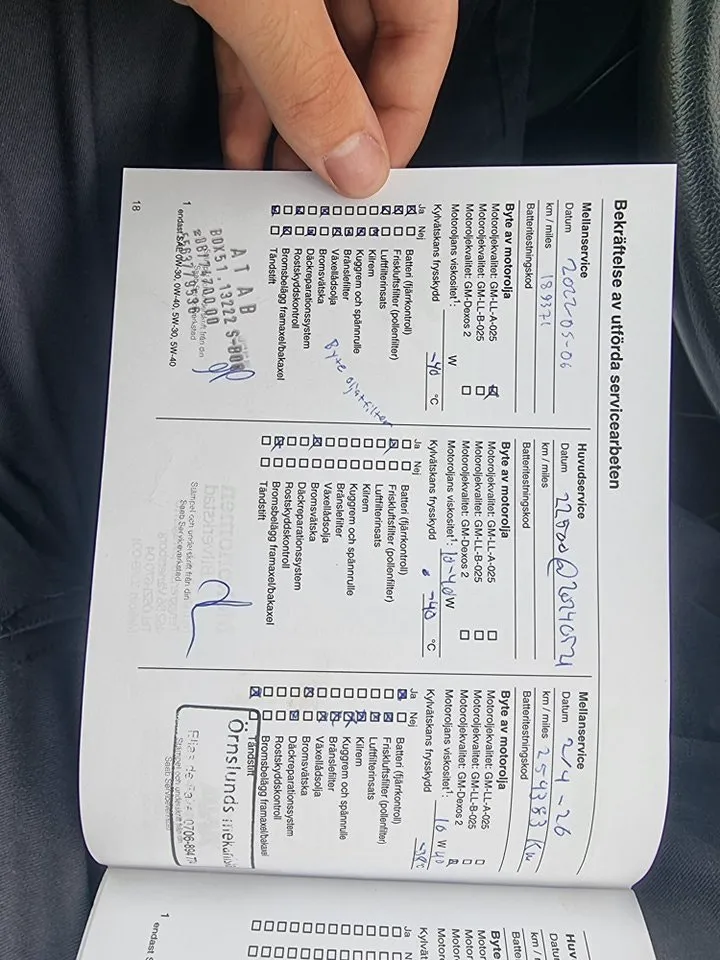 Bekräftelse av utförda servicearbeten
Mellanservice
Datum 2022-05-06
km / miles 189371
Batteritestningskod
Byte av motorolja
Motoroljekvalitet: GM-LL-A-025
Motoroljekvalitet: GM-LL-B-025
Motoroljekvalitet: GM-Dexos 2
Motoroljans viskositet¹: W
Kylvätskans frysskydd -40 °C
Ja Nej
Batteri (fjärrkontroll)
Friskluftsfilter (pollenfilter)
Luftfilterinsats
Kilrem
Kuggrem och spännrulle
Bränslefilter
Växellådsolja
Bromsvätska
Däckreparationssystem
Rostskyddskontroll
Bromsbelägg framaxel/bakaxel
Tändstift
Byte oljefilter
A T A B
BOX51, 13222 S-BOO
1 endast SAE 0W-30, 0W-40, 5W-30, 5W-40
18
Huvudservice
Datum
km / miles
Batteritestningskod
Byte av motorolja
Motoroljekvalitet: GM-LL-A-025
Motoroljekvalitet: GM-LL-B-025
Motoroljekvalitet: GM-Dexos 2
Motoroljans viskositet¹: 10-40 W
Kylvätskans frysskydd -40 °C
Ja Nej
Batteri (fjärrkontroll)
Friskluftsfilter (pollenfilter)
Luftfilterinsats
Kilrem
Kuggrem och spännrulle
Bränslefilter
Växellådsolja
Bromsvätska
Däckreparationssystem
Rostskyddskontroll
Bromsbelägg framaxel/bakaxel
Tändstift
Stämpel och underskrift från din
Saab Serviceverkstad
Mellanservice
Datum 2/4-26
km / miles 254383 Km
Batteritestningskod
Byte av motorolja
Motoroljekvalitet: GM-LL-A-025
Motoroljekvalitet: GM-LL-B-025
Motoroljekvalitet: GM-Dexos 2
Motoroljans viskositet¹: 10 W 40
Kylvätskans frysskydd -38c
Ja Nej
Batteri (fjärrkontroll)
Friskluftsfilter (pollenfilter)
Luftfilterinsats
Kilrem
Kuggrem och spännrulle
Bränslefilter
Växellådsolja
Bromsvätska
Däckreparationssystem
Rostskyddskontroll
Bromsbelägg framaxel/bakaxel
Tändstift
Örnslunds
Stämpel och underskrift från din
Saab Serviceverkstad
Ja
Nej
1 endast S